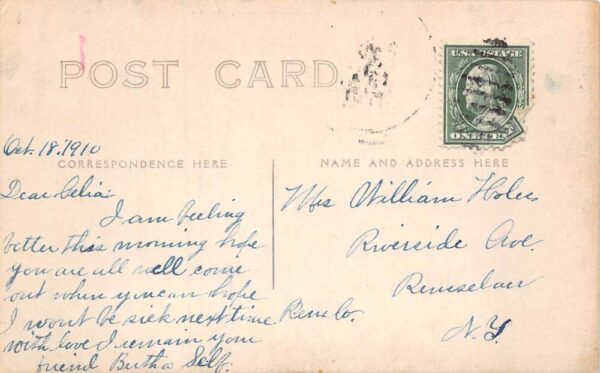 POST CARD
U.S. POSTAGE
ONE CENT
Oct. 18, 1910
CORRESPONDENCE HERE
NAME AND ADDRESS HERE
Dear Celia:
I am feeling
better this morning hope
you are all well come
out when you can hope
I won't be sick next time
with love I remain your
friend Bertha Self.
Mrs William
Riverside Ave.
Rensselaer
Rens Co.
N.Y.